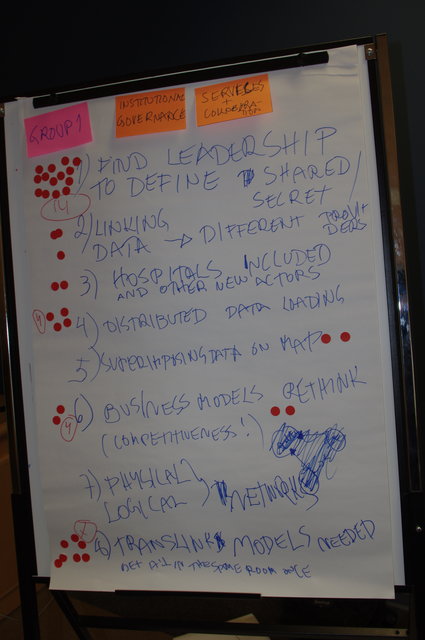 GROUP 1
INSTITUTIONAL
GOVERNANCE
SERVICES
+
COLLABORA
TION
1) FIND LEADERSHIP
TO DEFINE SHARED/
SECRET
14
2) LINKING
DATA → DIFFERENT PROVI
DERS
3) HOSPITALS INCLUDED
AND OTHER NEW ACTORS
4
4) DISTRIBUTED DATA LOADING
5) SUPERIMPOSING DATA ON MAP
6) BUSINESS MODELS RETHINK
4
(COMPETITIVENESS!)
7) PHYSICAL
LOGICAL ) NETWORKS
7
8) MODELS NEEDED
IN THE SAME ROOM